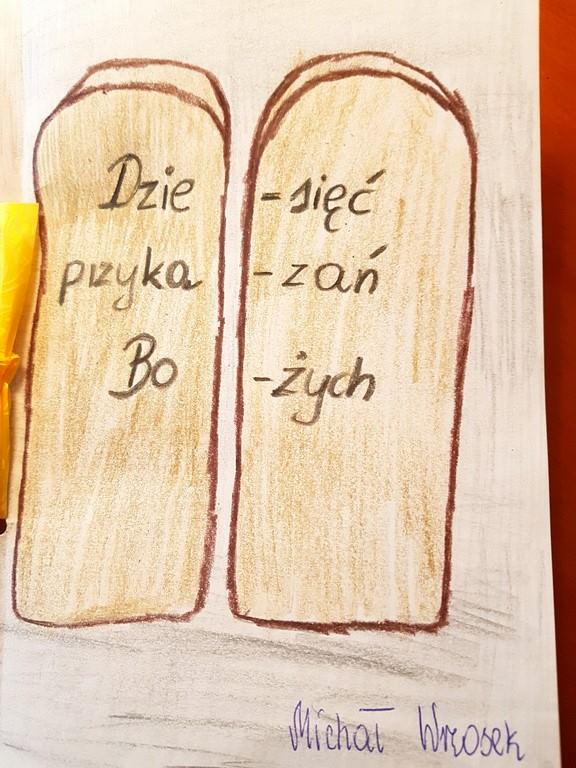 Dzie -sięć
przyka -zań
Bo -żych
Michał Wrzosek